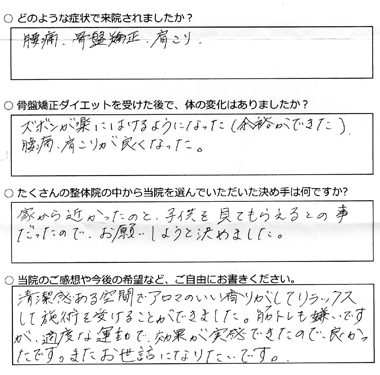 ○ どのような症状で来院されましたか?
腰痛、骨盤矯正、肩こり、
○ 骨盤矯正ダイエットを受けた後で、体の変化はありましたか?
ズボンが楽にはけるようになった(余裕ができた)
腰痛、肩こりが良くなった。
○ たくさんの整体院の中から当院を選んでいただいた決め手は何ですか?
家から近かったのと、子供を見てもらえるとの事
だったので、お願いしようと決めました。
○ 当院のご感想や今後の希望など、ご自由にお書きください。
清潔感ある空間でアロマのいい香りがしてリラックス
して施術を受けることができました。筋トレも嫌いです
が、適度な運動で、効果が実感できたので、良かっ
たです。またお世話になりたいです。